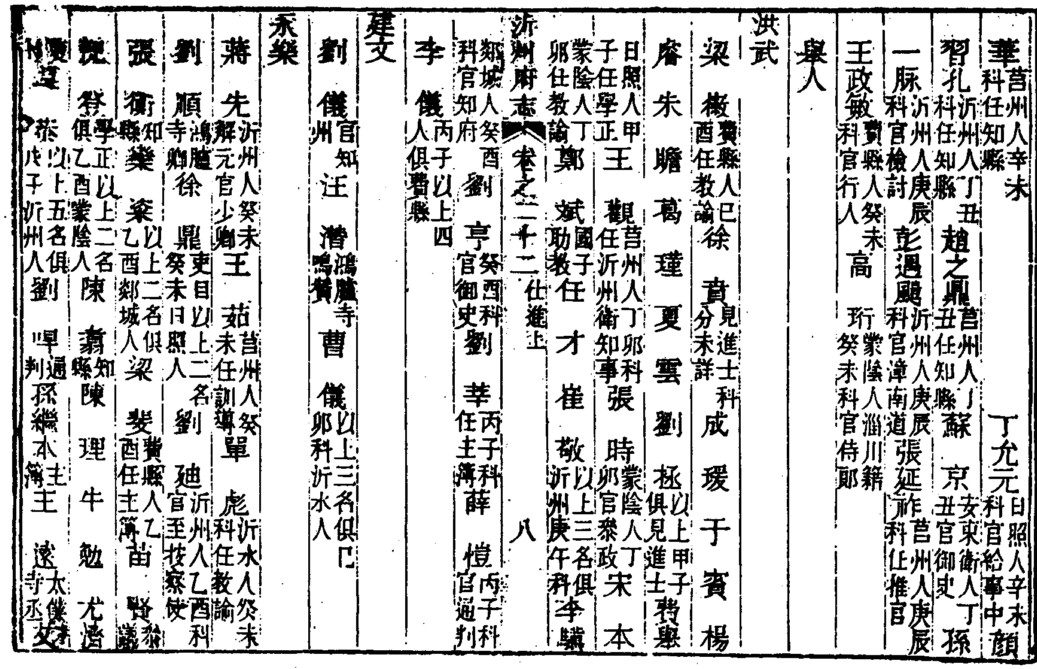 華 莒州人辛未科任知縣 丁允元 日照人辛未科官給事中 顏
習孔 沂州人丁丑科任知縣 趙之鼎 莒州人丁丑任知縣 蘇京 安東衛人丁丑官御史 孫
一脉 沂州人庚辰科官檢討 彭遇颽 沂州人庚辰科官漳南道 張延祚 莒州人庚辰科任推官
王政敏 費縣人癸未科官行人 高珩 蒙陰人淄川籍癸未科官侍郎
舉人
洪武
梁 費縣人已酉任教諭 徐賁 見進士科分未詳 成瑗 于賓 楊
庸 朱瞻 葛瑾 夏雲 劉極 以上甲子俱見進士 費舉
日照人甲子任學正 王觀 莒州人丁卯科任沂州衛知事 張時 蒙陰人丁卯官叅政 宋本
蒙陰人丁卯任教諭 鄭斌 國子助教 任才 崔敬 以上三名俱沂州庚午科 李驥
沂州府志 卷之二十二 仕進上 八
郯城人癸酉科官知府 劉亨 癸酉科官御史 劉莘 丙子科任主簿 薛愷 丙子科官通判
李儀 丙子以上四人俱費縣
建文
劉儀 官知州 汪潛 鴻臚寺鳴贊 曹儀 以上三名俱巳卯科沂水人
永樂
蔣先 沂州人癸未解元官少卿 王茹 莒州人癸未任訓導 單彪 沂水人癸未科任教諭
劉順 鴻臚寺卿 徐鼎 吏目以上二名癸未日照人 劉迪 沂州人乙酉科官至按察使
張衛 知縣 欒粢 以上二名俱乙酉郯城人 梁斐 費縣人乙酉任主簿 苗賢 叅議
倪登 學正以上二名俱乙酉蒙陰人 陳翥 知縣 陳理 牛勉 尤濟
恭 以上五名俱戊子沂州人 劉 通判 孫繼本 主簿 王遠 太僕寺寺丞